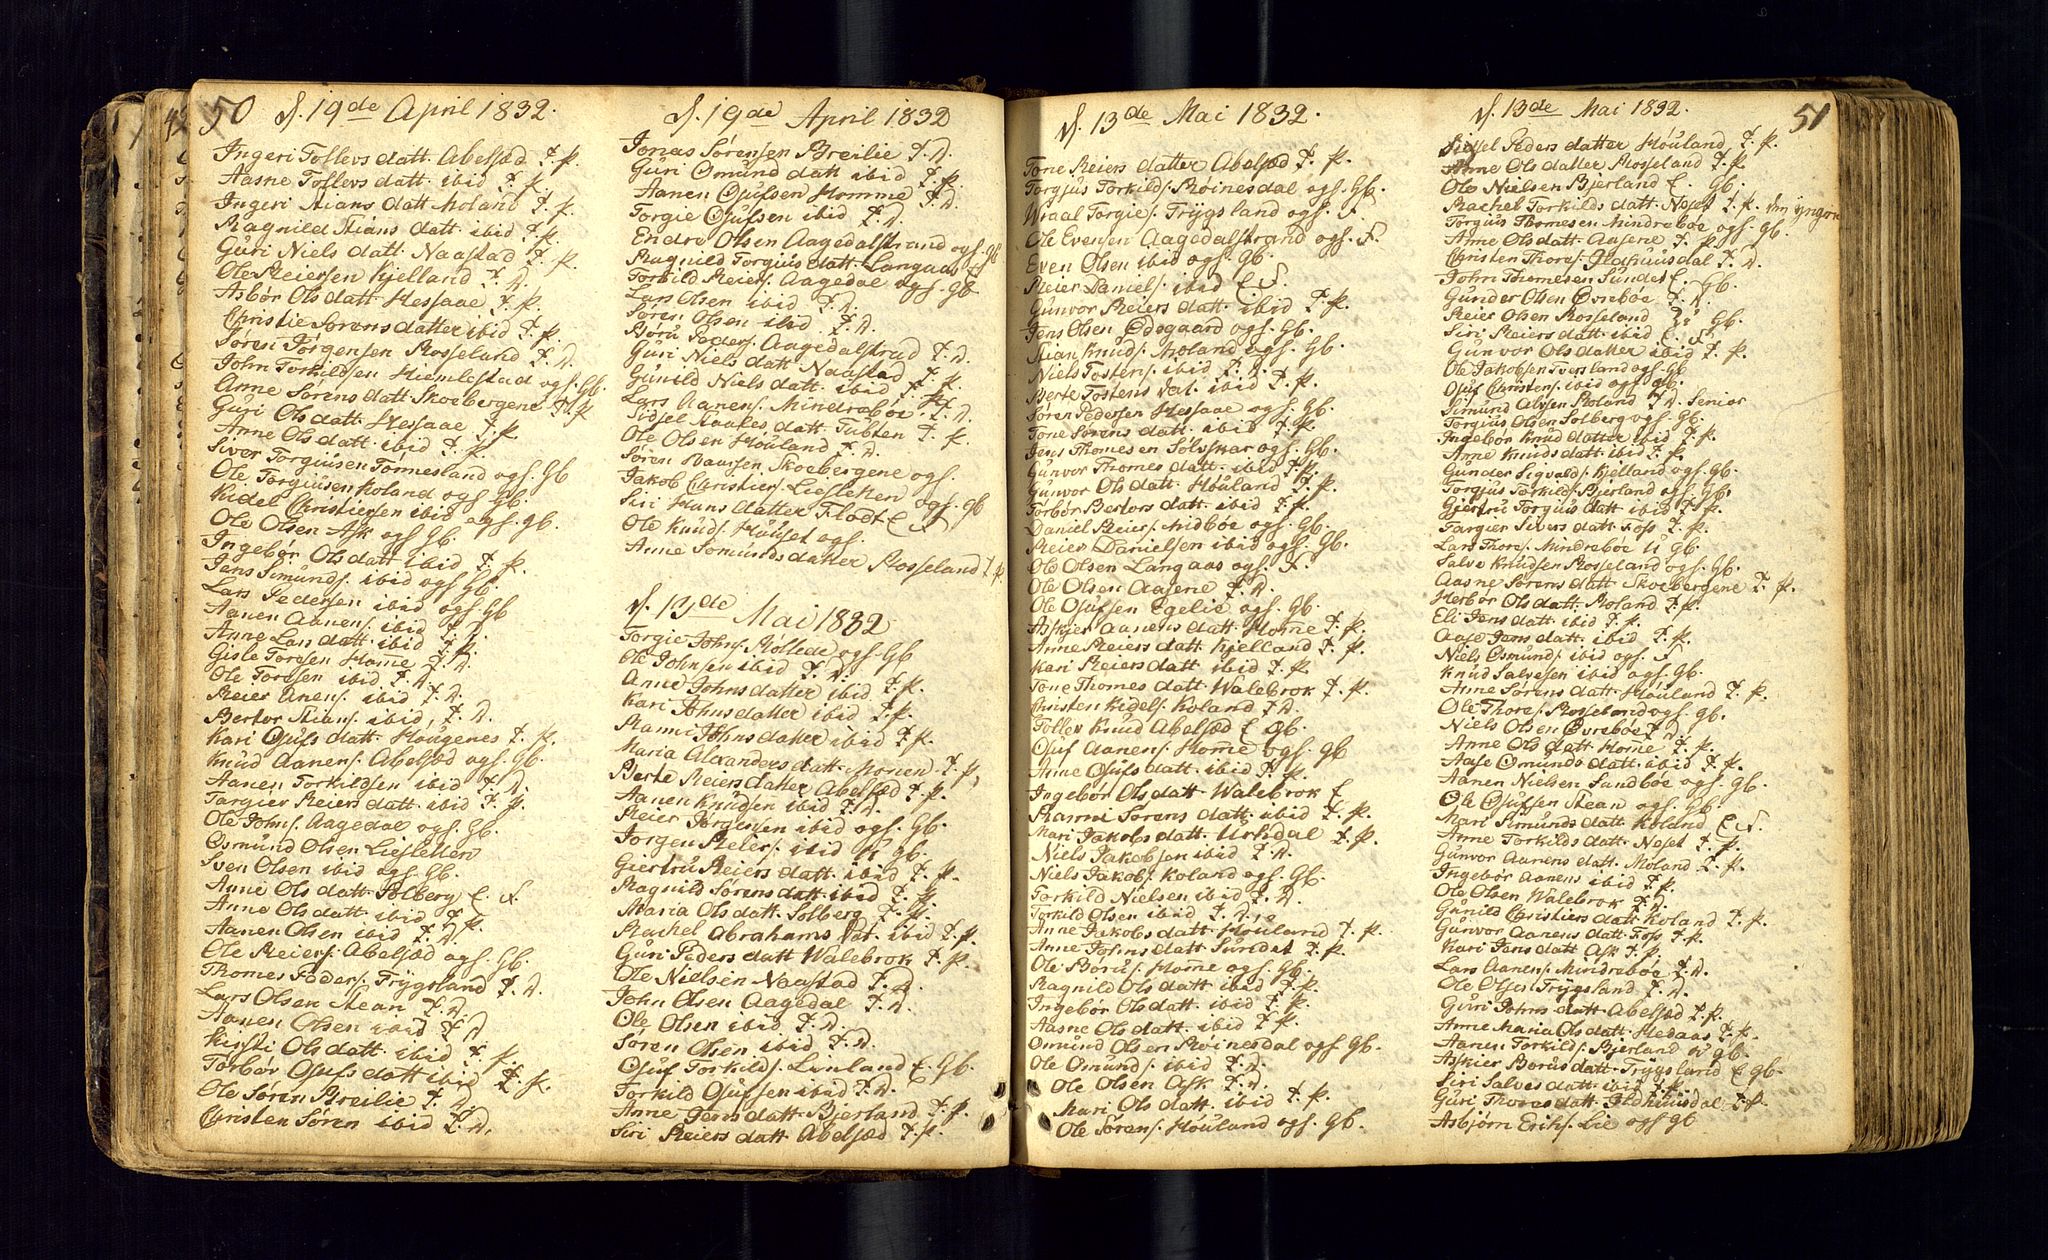 50
d. 19de April 1832.
Ingeri Tollevs datt. Abelsæd T. P.
Aasne Tollevs datt. ibid T. P.
Ingeri Stians datt Moland T. P.
Magnild Stians datt. ibid T. P.
Guri Niels datt. Naastad T. P.
Ole Reiersen Kjelland T. D.
Asbør Ols datt. Hessaae T. P.
Christie Sørens datter ibid T. P.
Søren Jørgensen Rosseland T. D.
John Torkildsen Hiemlestad ogs. Gb.
Anne Sørens datt. Skoebergene T. P
Guri Ols datt. Hessaae T. P.
Anne Ols datt. ibid T. P.
Siver Torgiusen Tonnesland ogs. Gb
Ole Torgiusen Roland ogs Gb.
Kidel Christensen ibid ogs. Gb.
Ole Olsen Ask og Gb.
Ingebør Ols datt. ibid T. P.
Jens Simunds. ibid ogs Gb.
Lars Pedersen ibid ogs. Gb
Aanen Aanens. ibid T. D.
Anne Lars datt. ibid T. P.
Gisle Toresen Home T. D.
Ole Toresen ibid T. D.
Reier Anens. ibid T. D.
Bertor Stians. ibid, T. D.
Kari Osufs datt. Hougenes T. P.
Knud Aanens. Abelsæd ogs. Gb.
Aanen Torkildsen ibid T. D.
Targier Reiers datt. ibid T. P.
Ole Johns. Aagedal ogs. Gb.
Osmund Olsen Liesletten
Sven Olsen ibid ogs. Gb.
Anne Ols datt. Solberg E. S.
Anne Ols datt. ibid T. P.
Aanen Olsen ibid T. D.
Ole Reiers. Abelsæd ogs. Gb.
Thomes Peders. Trygsland T. D.
Lars Olsen Stean T. D.
Aanen Olsen ibid T. D
Kirsti Ols datt. ibid T. P.
Torbør Osufs datt. ibid T. P.
Ole Søren Breilie T. D.
Christen Søren ibid T. D.
d. 19de April 1832
Jonas Sørensen Breilie T. D.
Guri Omund datt ibid T. P.
Aanen Osufsen Homme T. D.
Torgie Osufsen ibid T. D.
Endre Olsen Aagedalstrand ogs. Gb
Magnild Torgius datt. Langaas
Torkild Reiers. Aagedal ogs. Gb.
Lars Olsen ibid T. D.
Søren Olsen ibid T. D.
Børu Peders. Aagedalstrad T. D.
Guri Niels datt Naastad T. P.
Gunild Niels datt. ibid T. P.
Lars Aanens. Mindrebøe T. D.
Sidsel Aanes datt. Tubten T. P.
Ole Olsen Houland T. D.
Søren Skoebergene ogs.
Jakob Christiers. Liesletten ogs. Gb
Siri Hans datter Flodt E S
Ole Knuds. Houset ogs.
Anne Somunds datter Rosseland T. P.
d. 13de Mai 1832
Torgie Johns. Røllede ogs. Gb
Ole Johnsen ibid T. D.
Anne Johns datter ibid T. P.
Kari Johns datter ibid T. P.
Ranni Johns datter ibid T. P.
Maria Alexanders datt. Monen T. P.
Berte Reiers datter Abelsæd T. P.
Aanen Knudsen ibid T. D.
Reier Jørgensen ibid ogs. Gb.
Jorgen Reiers. ibid U Gb.
Giertru Reiers datt. ibid T. P.
Magnild Sørens datt. ibid T. P.
Maria Ols datt. Solberg T. P.
Rachel Abrahams dat. ibid T. P.
Guri Peders datt Walebrok T. P.
Ole Nielsen Naastad T. D.
John Olsen Aagedal T. D.
Ole Olsen ibid T. D.
Søren Olsen ibid T. D.
Osuf Torkilds. Lunland E. Gb.
Torkild Osufsen ibid T. D.
Anne Jens datt. Bjerland T. P.
Siri Reiers datt. Abelsæd T. P.
d. 13de Mai 1832.
Tone Reiers datter Abelsæd T. P.
Torgjus Torkilds. Røinesdal ogs. Gb.
Wraal Torgies. Trygsland ogs. S
Ole Evensen Aagedalstrand ogs. S.
Even Olsen ibid ogs. Gb.
Reier Daniels. ibid E S.
Gunvor Reiers datt. ibid T. P.
Jens Olsen Ødegaard ogs. Gb.
Stian Knuds. Moland ogs. Gb.
Niels Tostens. ibid T. D.
Berte Tostens dat. ibid T. P.
Søren Pedersen Hessaae ogs. Gb.
Tone Sørens datt. ibid T. P.
Jens Thomesen Sølvskar ogs. Gb.
Gunvor Thomes datt. ibid T. P.
Gunvor Ols datt. Houland T. P.
Torbør Bertors datt. ibid T. P.
Daniel Reiers. Midbøe ogs. Gb.
Reier Danielsen ibid ogs. Gb.
Ole Olsen Langaas ogs. S.
Ole Olsen Aasene T. D.
Ole Osufsen Egelie ogs. Gb.
Askjer Aanens datt. Home T. P.
Anne Reiers datt. Kjelland T. P.
Kari Reiers datt. ibid T. P.
Tone Thomes datt. Walebrok T. P.
Christen Kidels. Roland T. D.
Tollev Knud Abelsæd E Gb.
Osuf Aanens. Home ogs. Gb
Anne Osufs datt. ibid T. P.
Ingebør Ols datt. Walebrok E
Ranni Sørens datt. ibid T. P.
Mari Jakobs datt. Ursdal T. P.
Niels Jakobsen ibid T. D.
Niels Jakobs. Roland ogs. Gb.
Torkild Nielsen ibid T. D.
Torkild Olsen ibid T. D.
Anne Jakobs datt. Houland T. P.
Anne Johns datt. Sundet T. P.
Ole Børus. Home ogs. Gb.
Magnild Ols datt. ibid T. P.
Ingebør Ols datt. ibid T. P.
Aasne Ols datt. ibid T. P.
Omund Olsen Røinesdal ogs Gb.
Ole Omunds. ibid T. D.
Ole Olsen Ask T. D.
Mari Ols datt. ibid T. P.
Ole Sørens. Houland ogs. Gb.
d. 13de Mai 1832.
51
Sidsel Peders datter Houland, T. P.
Anne Ols datter Rosseland T. P.
Ole Nielsen Bjerland E. Gb.
Rachel Torkilds datt. Neset T. P. den yngre
Torgius Thomesen Mindrebøe ogs. Gb.
Anne Ols datt. Aasene T. P.
Christen Thores. Ildhuusdal T. D.
John Thomesen Sundet E. Gb.
Gunder Olsen Øvrebøe T. D.
Reier Olsen Rosseland U Gb.
Siri Reiers datt. ibid E. S
Gunvor Ols datter ibid T. P.
Ole Jakobsen Iversland ogs. Gb
Osuf Christens. ibid ogs. Gb.
Simund Alvsen Roland T. D. Senior
Torgius Olsen Solberg ogs. Gb.
Ingebør Knud datter ibid T. P.
Anne Knuds datt. ibid T. P.
Gunder Sigvalds. Kjelland ogs. Gb.
Torgjus Torkilds. Bjerland ogs. Gb.
Gjertru Torgius datt. ibid T. P.
Targier Sivers datt. Foss T. P.
Lars Thores. Mindrebøe U Gb.
Salve Knudsen Rosseland ogs. Gb.
Aasne Sørens datt. Skoebergene T. P.
Herbør Ols datt. Roland T. P.
Eli Jens datt. ibid T. P.
Aase Jens datt. ibid T. P.
Niels Osmunds. ibid ogs. S
Knud Salvesen ibid ogs. Gb.
Anne Sørens datt. Houland T. P.
Ole Thores. Rosseland ogs. Gb.
Niels Olsen Øvrebøe T. D.
Anne Ols datt. Home T. P.
Aase Omunds datt. ibid T. P.
Aanen Nielsen Sandbøe ogs. Gb.
Ole Osufsen Stean ogs. Gb.
Mari Simunds datt. Roland E. S.
Anne Torkilds datt. Neset T. P.
Gunvor Aanens datt. Moland T. P.
Ingebør Aanens ibid T. P.
Ole Olsen Walebrok T. D.
Gunild Christiers datt. Roland T. P.
Gunvor Aanens datt. Foss T. P.
Kari Jens datt Ask T. P.
Lars Aanens. Mindrebøe T. D.
Ole Olsen Trygsland T. D.
Guri Johns datt. Abelsæd T. P.
Anne Maria Ols datt. Hedaas T. P.
Aanen Torkilds. Bjerland U Gb.
Askier Børus datt. Trygsland E Gb.
Siri Salves datt. ibid T. P.
Guri Thores datt. Ildhuusdal T. P.
Asbjørn Eriks. Lie ogs Gb